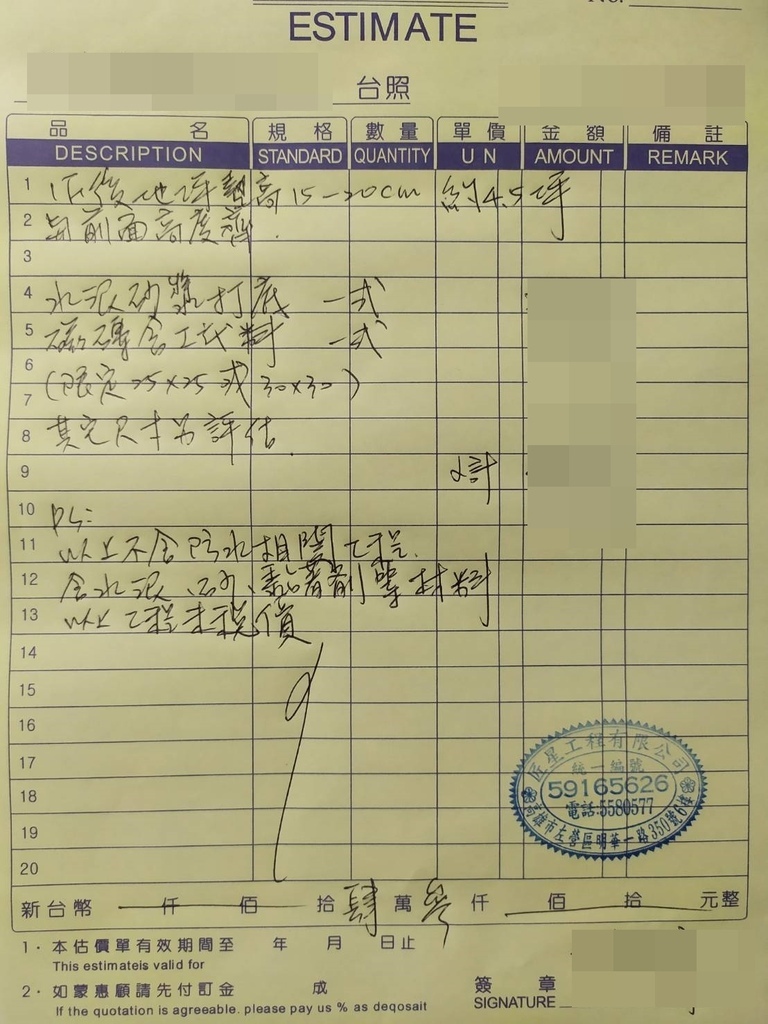 No.
ESTIMATE
台照
品名 規格 數量 單價 金額 備註
DESCRIPTION STANDARD QUANTITY U N AMOUNT REMARK
1 后後地坪墊高15-20cm 約4.5坪
2 與前面高度齊.
3
4 水泥砂漿打底 一式
5 磁磚含工代料 一式
6 (限定25x25或30x30)
7
8 其它尺寸另評估.
9 計
10 PS:
11 以上不含防水相關工程.
12 含水泥、砂、黏著劑等材料
13 以上工程未稅價
14
15
16
17
18
19
20
匠星工程有限公司
統一編號
59165626
電話:5580577
高雄市左營區明華一路350號6樓
新台幣 仟 佰 拾 肆 萬 參 仟 佰 拾 元整
1．本估價單有效期間至 年 月 日止
This estimateis valid for
2．如蒙惠顧請先付訂金 成
If the quotation is agreeable. please pay us % as deqosait
簽章
SIGNATURE